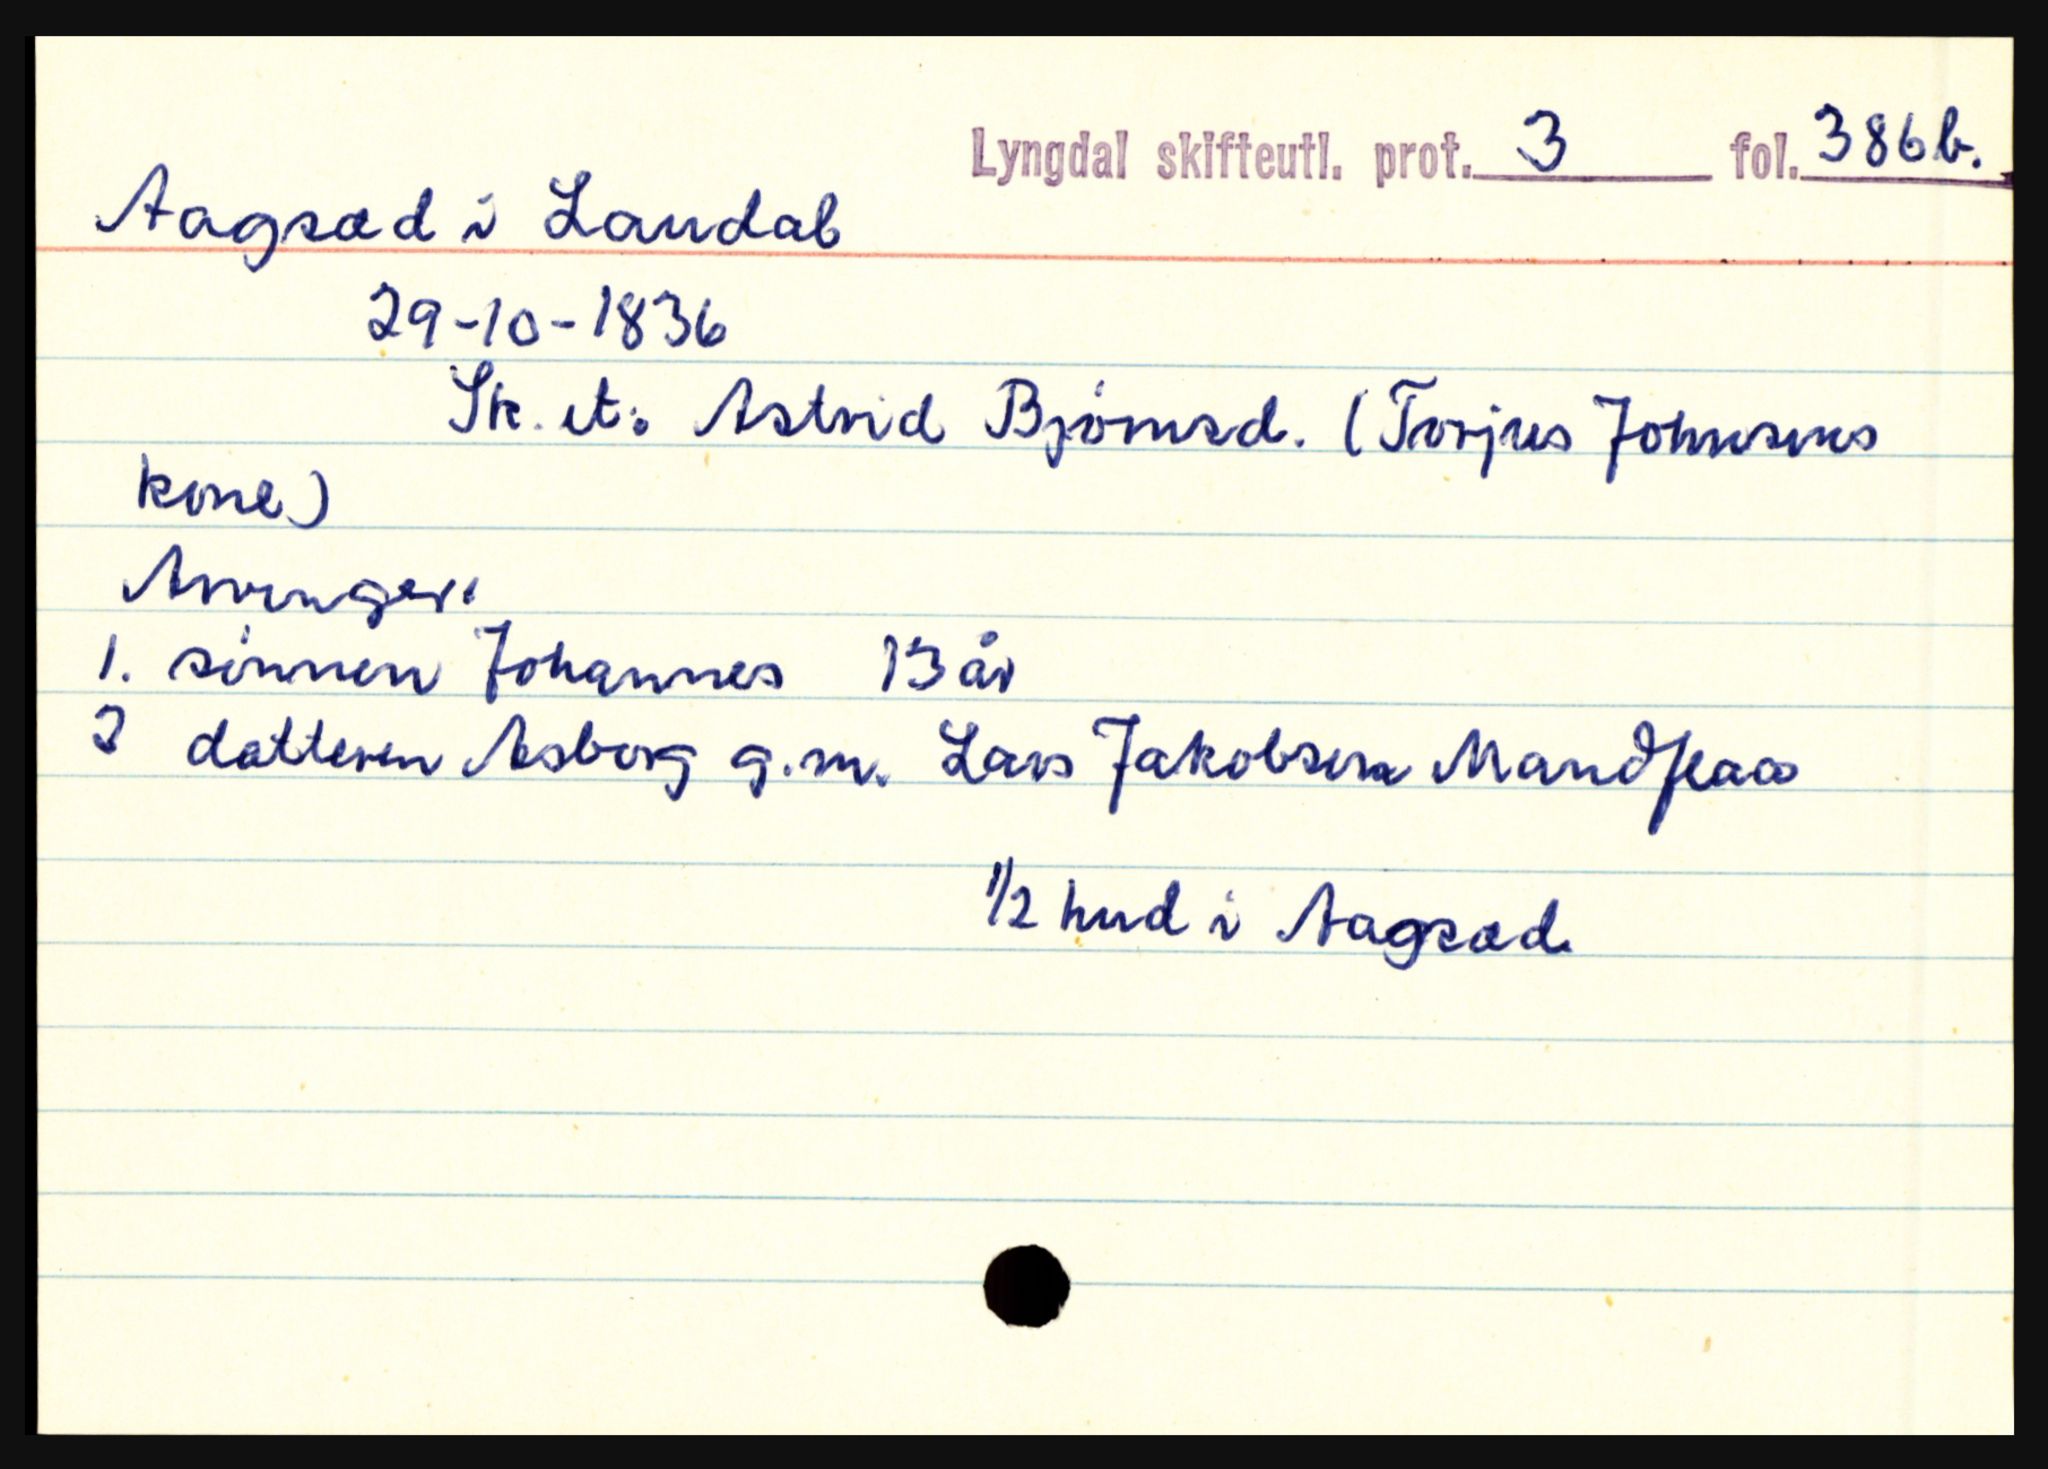 Lyngdal skifteutl. prot. 3 fol. 386b.
Aagsæd i Laudal
29-10-1836
Sk. et. Astrid Bjørnsd. (Torjus Johnsens
kone)
Arvinger:
1. sønnen Johannes 13 år
2 datteren Asborg g.m. Lars Jakobsen Mandflaas
1/2 hud i Aagsæd.